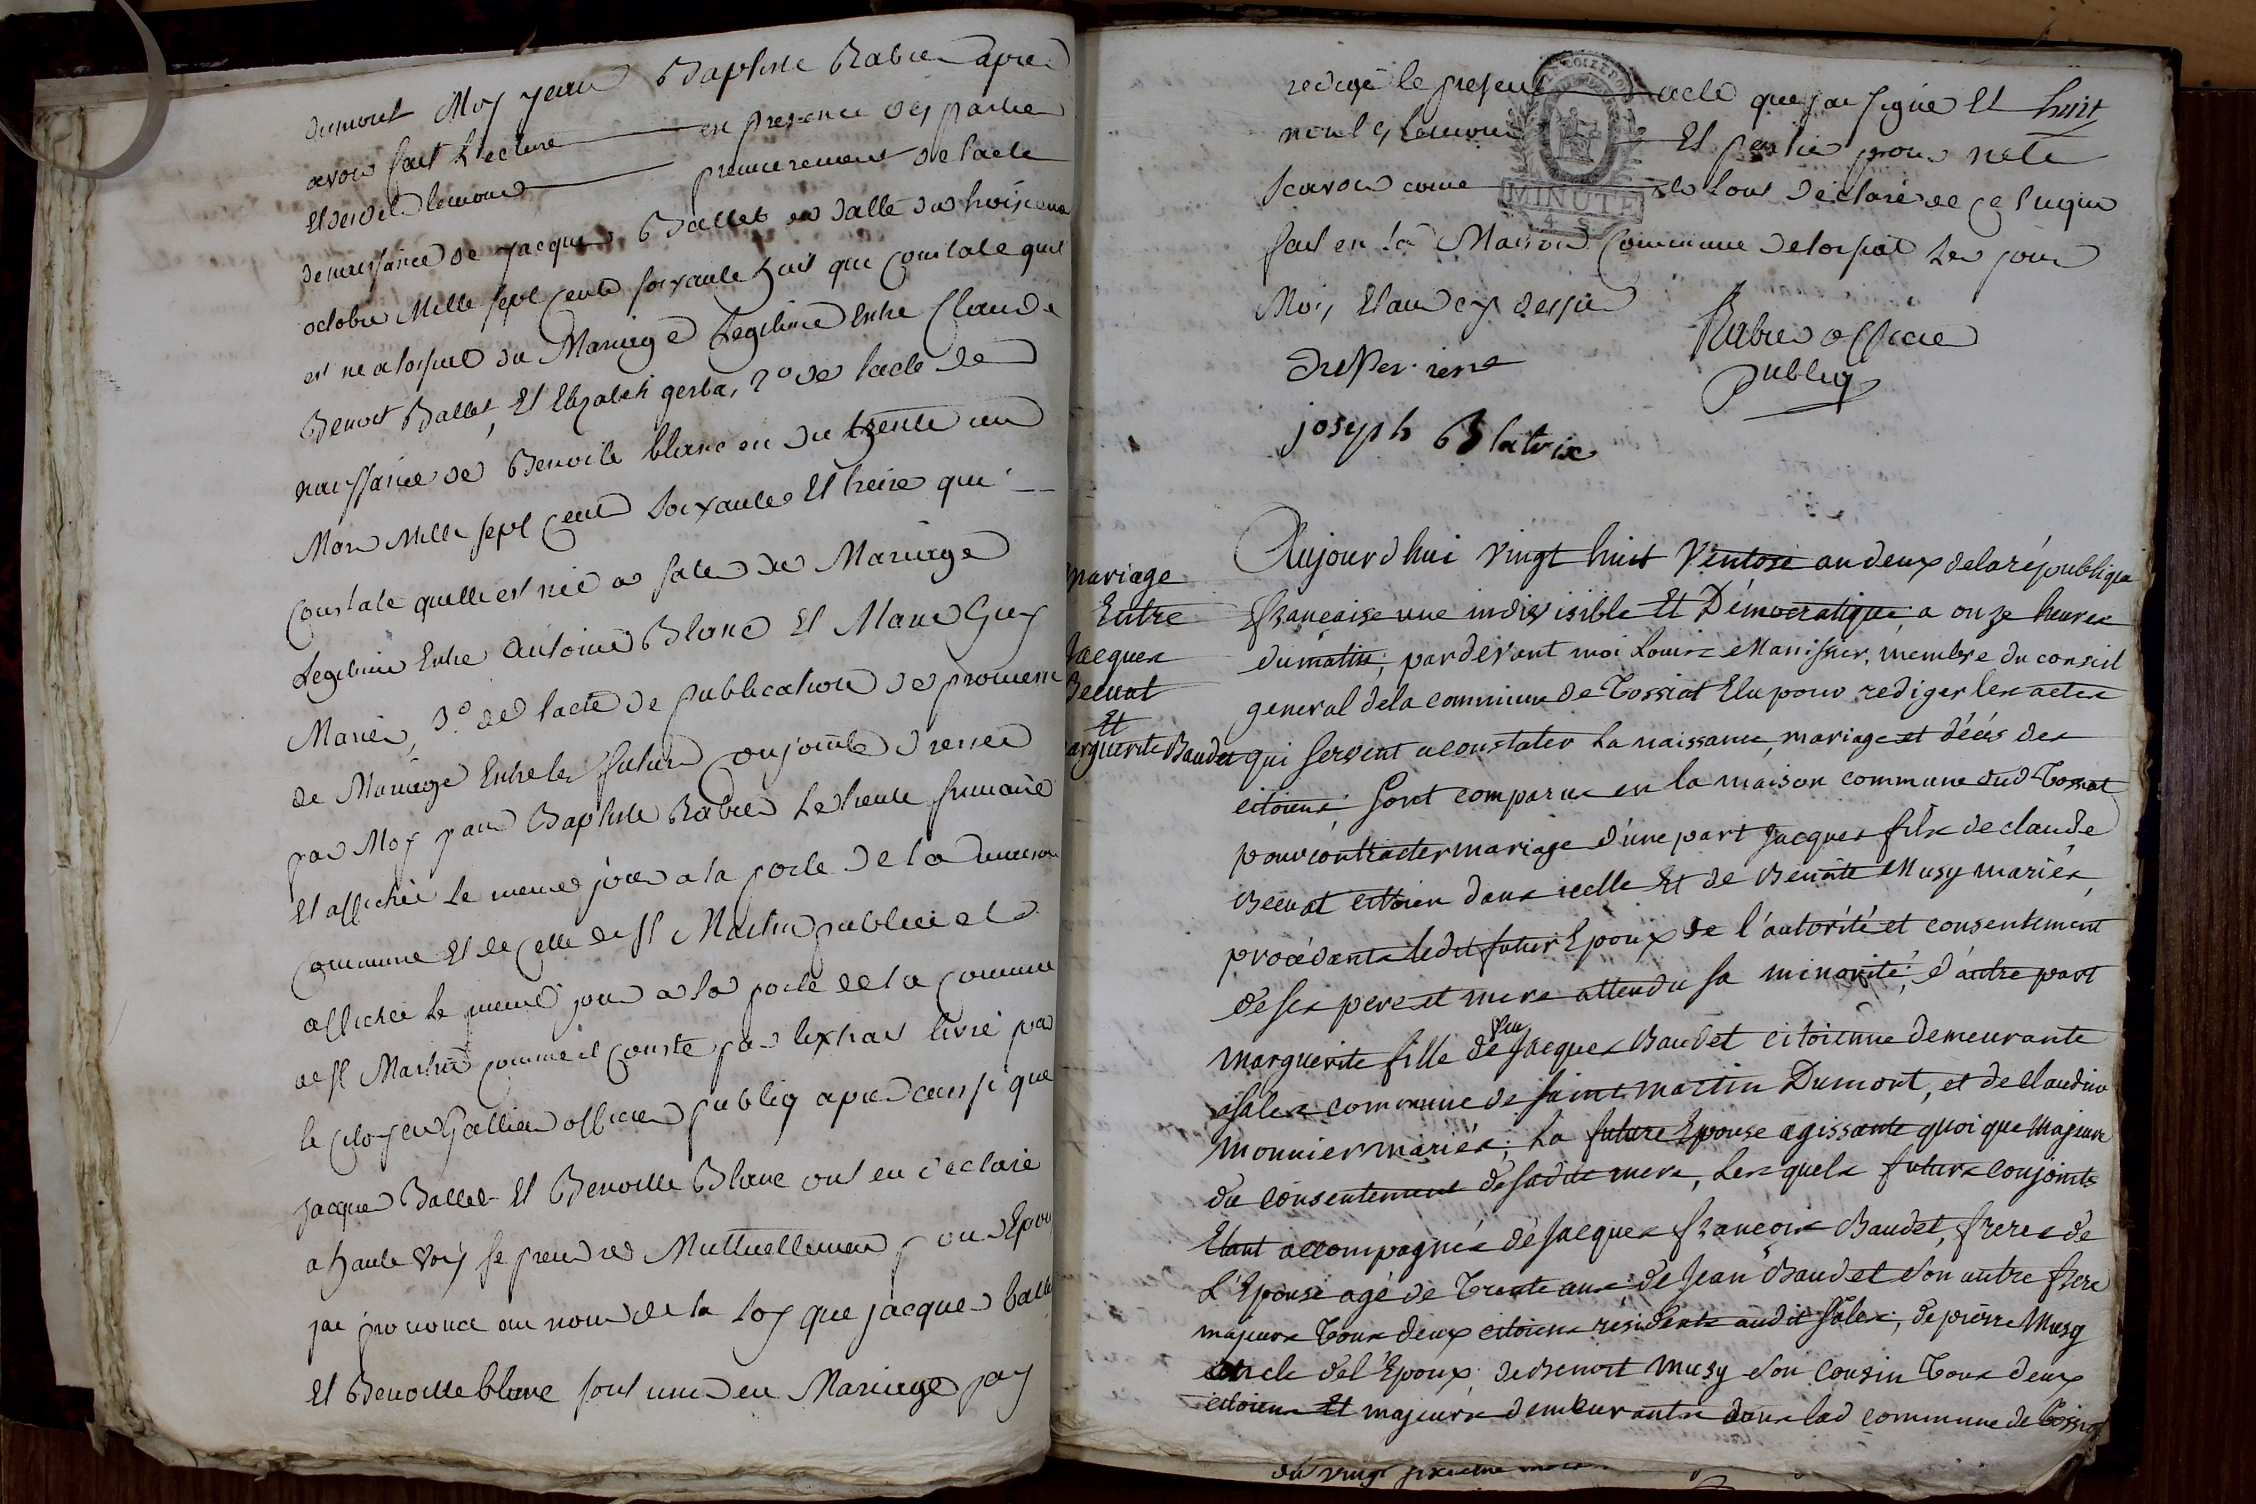 dumont Moy jean Baptiste Rabier apres
avoir fait Lecture en presence des parties
Et desdits temoins premierement de lacte
de naissance de jacques Ballet en datte du troisieme
octobre Mille sept cents soixante huit qui constate quil
est ne a tossiat du Mariage Legitime Entre Claude
Benoit Ballet, Et Elizabeth gerba, 2° de lacte de
naissance de Benoite blanc en du trente un
Mars Mille sept cent soixante Et treize qui
Constate quelle est née a sale du Mariage
Legitime Entre antoine Blanc Et Marie Guy
Mariés, 3° de lacte de publication de promesse
de Mariage Entre les futurs conjoints dressee
par Moy jean Baptiste Rabier Le trente frimaire
Et affichée Le meme jour a la porte de la maison
Commune Et de Celle de st Martin publiée et
affichée Le meme jour a la porte de la commune
de st Martin comme il conste par lextrait livré par
le citoyen Gallien officier publiq apres aussi que
Jacque Ballet Et Benoitte Blanc ont eu déclaré
a haute voix se prendre Mutuellement pour Epoux
jai prononcé au nom de la Loy que jacques ballet
Et Benoitte blanc sont unis en Mariage jay
redigé le present acte que jai signé Et huit
mots, temoins Et parties pour nete
scavoir come ils lont déclaré de ce enquis
fait en la Maison Commune de tossiat Les jour
Mois Et an cy dessus
MINUTE
4 S
Rabier officier
publiq
joseph Blatrix
Mariage
Entre
Jacques
Becuat
Et
arguerite Baudet
Aujourdhui vingt huit Ventose an deux de la république
française une indivisible Et Démocratique, a onze heures
du matin, pardevant moi Louis Manissier, membre du conseil
general de la commune de Tossiat Elu pour rediger les actes
qui servent a constater La naissance, mariage et décés des
citoiens, sont comparus en la maison commune dud Tossiat
pour contracter mariage d'une part Jacques fils de claude
Becuat citoien dans icelle Et de Benoite Musy mariés,
procédants ledit futur Epoux de l'autorité et consentement
de ses pere et mere attendu sa minorité; d'autre part
Marguerite fille de feu Jacques Baudet citoienne demeurante
a Sales commune de Saint martin Dumont, et de claudine
Monnier mariés; La future Epouse agissante quoi que Majeure
du consentement de sadite mere, Les quels futurs conjoints
Etant accompagnés de Jacques françois Baudet, freres de
L'Epouse agé de Trente ans de Jean Baudet son autre frere
majeurs Tous deux citoiens résidents audit Sales; de pierre Musy
oncle de l'Epoux, de Benoit Musy son cousin Tous deux
citoiens Et majeurs demeurants dans lad commune de Tossiat
du vingt sixieme mars